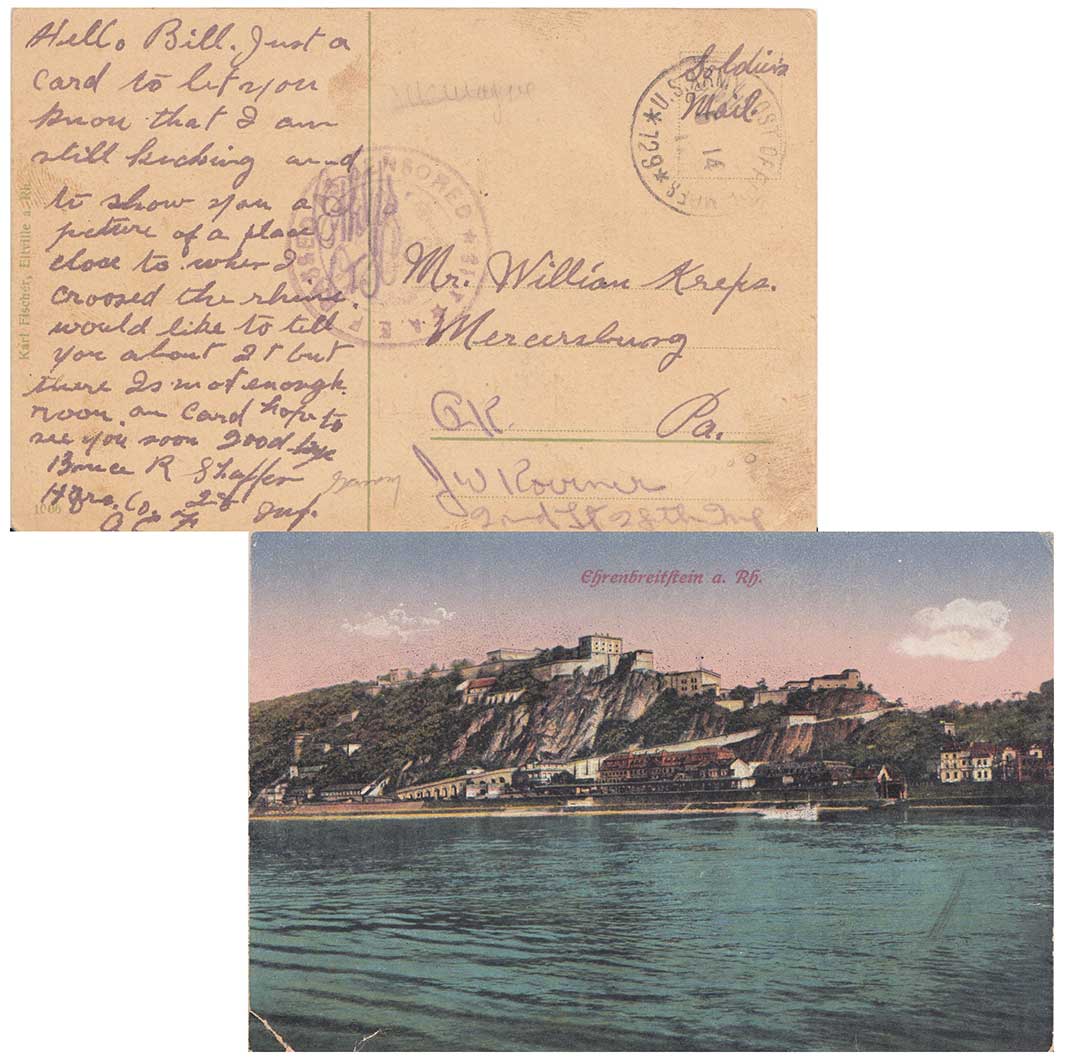 Hello Bill. Just a
card to let you
know that I am
still kicking and
to show you a
picture of a place
close to where I
croosed the rhine.
would like to tell
you about It but
there Is not enough
room. on Card hope to
see you soon Good bye
Bruce R Shaffer
Hdrs. Co. 28 Inf.
A E F
1066
Karl Fischer, Eltville a. Rh.
Soldiers
Mail
U.S. ARMY POST OFFICE M.P.E.S * 729 *
14
PASSED CENSORED * A.E.F.
Mr. William Kreps.
Mercersburg
Pa.
OK
2nd Lt 28th Inf
Germany
Ehrenbreitstein a. Rh.